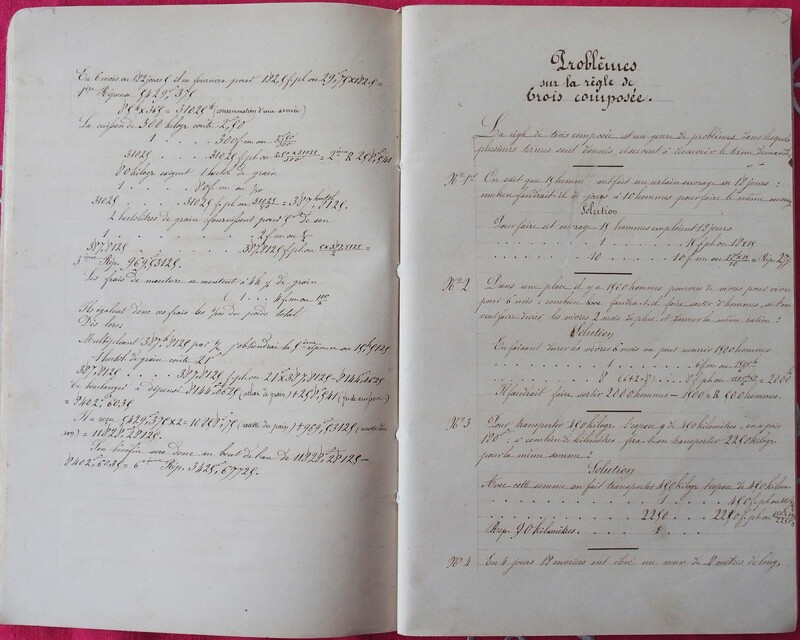 En 6 mois ou 182 jours ½ il en fournira pour 182,5 f. ph ou 29,75 x 182,5 =
1ère Réponse 5429,375
85 k x 365 = 31025 k (consommation d'une année)
La cuisson de 300 kilogr coûte 2,50
1 . . . . . 300 f. m ou 2,50/300
31025 . . . . . 31025 f. ph ou 2,50 x 31025/300 = 2ième R 258,541
80 kilogr exigent 1 hectol. de grain
1 . . . . 80 f. m ou 1/80
31025 . . . . . 31025 f. ph ou 31025/80 = 387 hectol,8125.
2 hectolitres de grain fournissent pour 5 de son
1 . . . . . 2 f. m ou 5/2
387,8125 . . . . . 387,8125 f. ph ou 5 x 387,8125/2 =
3ième Rép. 969,53125.
Les frais de mouture se montent à de grain
Ils égalent donc ces frais les du poids total
Dès lors
Multipliant 387,8125 par j'obtiendrai la réponse ou
1 hectol. de grain coûte 21
387,8125 . . . . 387,8125 f. ph ou 21 x 387,8125 = 8144,0625
Le boulanger a dépensé 8144,0625 (achat de grain) + 258,541 (frais de cuisson)
= 8402,6035
Il a reçu 5429,375 x 2 = 10858,75 (vente du pain) + 969,53125 (vente du
son) = 11828,28125
Son bénéfice sera donc au bout de l'an de 11828,28125 –
8402,6035 = 6ième Rép. 3425,67775.
Problèmes
sur la règle de
trois composée.
La règle de trois composée est un genre de problèmes dans lesquels
plusieurs termes sont donnés et servent à découvrir le terme demandé
No 1er On sait que 15 hommes ont fait un certain ouvrage en 18 jours :
combien faudrait-il de jours à 10 hommes pour faire le même ouvrage
Solution
Pour faire cet ouvrage 15 hommes emploient 18 jours
. . . . . . . 1 . . . . . 15 f. ph ou 18 x 15
. . . . . . . 10 . . . . . 10 f. m ou 18 x 15/10 = Rép. 27 j.
No 2 Dans une place il y a 1500 hommes pourvus de vivres pour vivre
pour 6 mois : combien faudrait-il faire sortir d'hommes, si l'on
veut faire durer les vivres 2 mois de plus et donner la même ration ?
Solution
En faisant durer les vivres 6 mois on peut nourrir hommes
. . . . . . . 1 . . . . . 6 f. m ou
. . . . . . . 8 (6+2=8) . . . . 8 f. ph ou = 2000 h
Il faudrait faire sortir 2000 hommes – = R. hommes.
No 3 Pour transporter 450 kilogr. l'espace de 450 kilomètres, on a pris
180 f. ; à combien de kilomètres fera-t-on transporter 2250 kilogr.
pour la même somme ?
Solution
Avec cette somme on fait transporter 450 kilogr l'espace de 450 kilom
. . . . . . . 1 . . . . . 450 f. ph ou
. . . . . . . 2250 . . . . . 2250 f. ph ou
Rép. 90 kilomètres.
No 4 En 4 jours 18 ouvriers ont élevé un mur de 8 mètres de long,